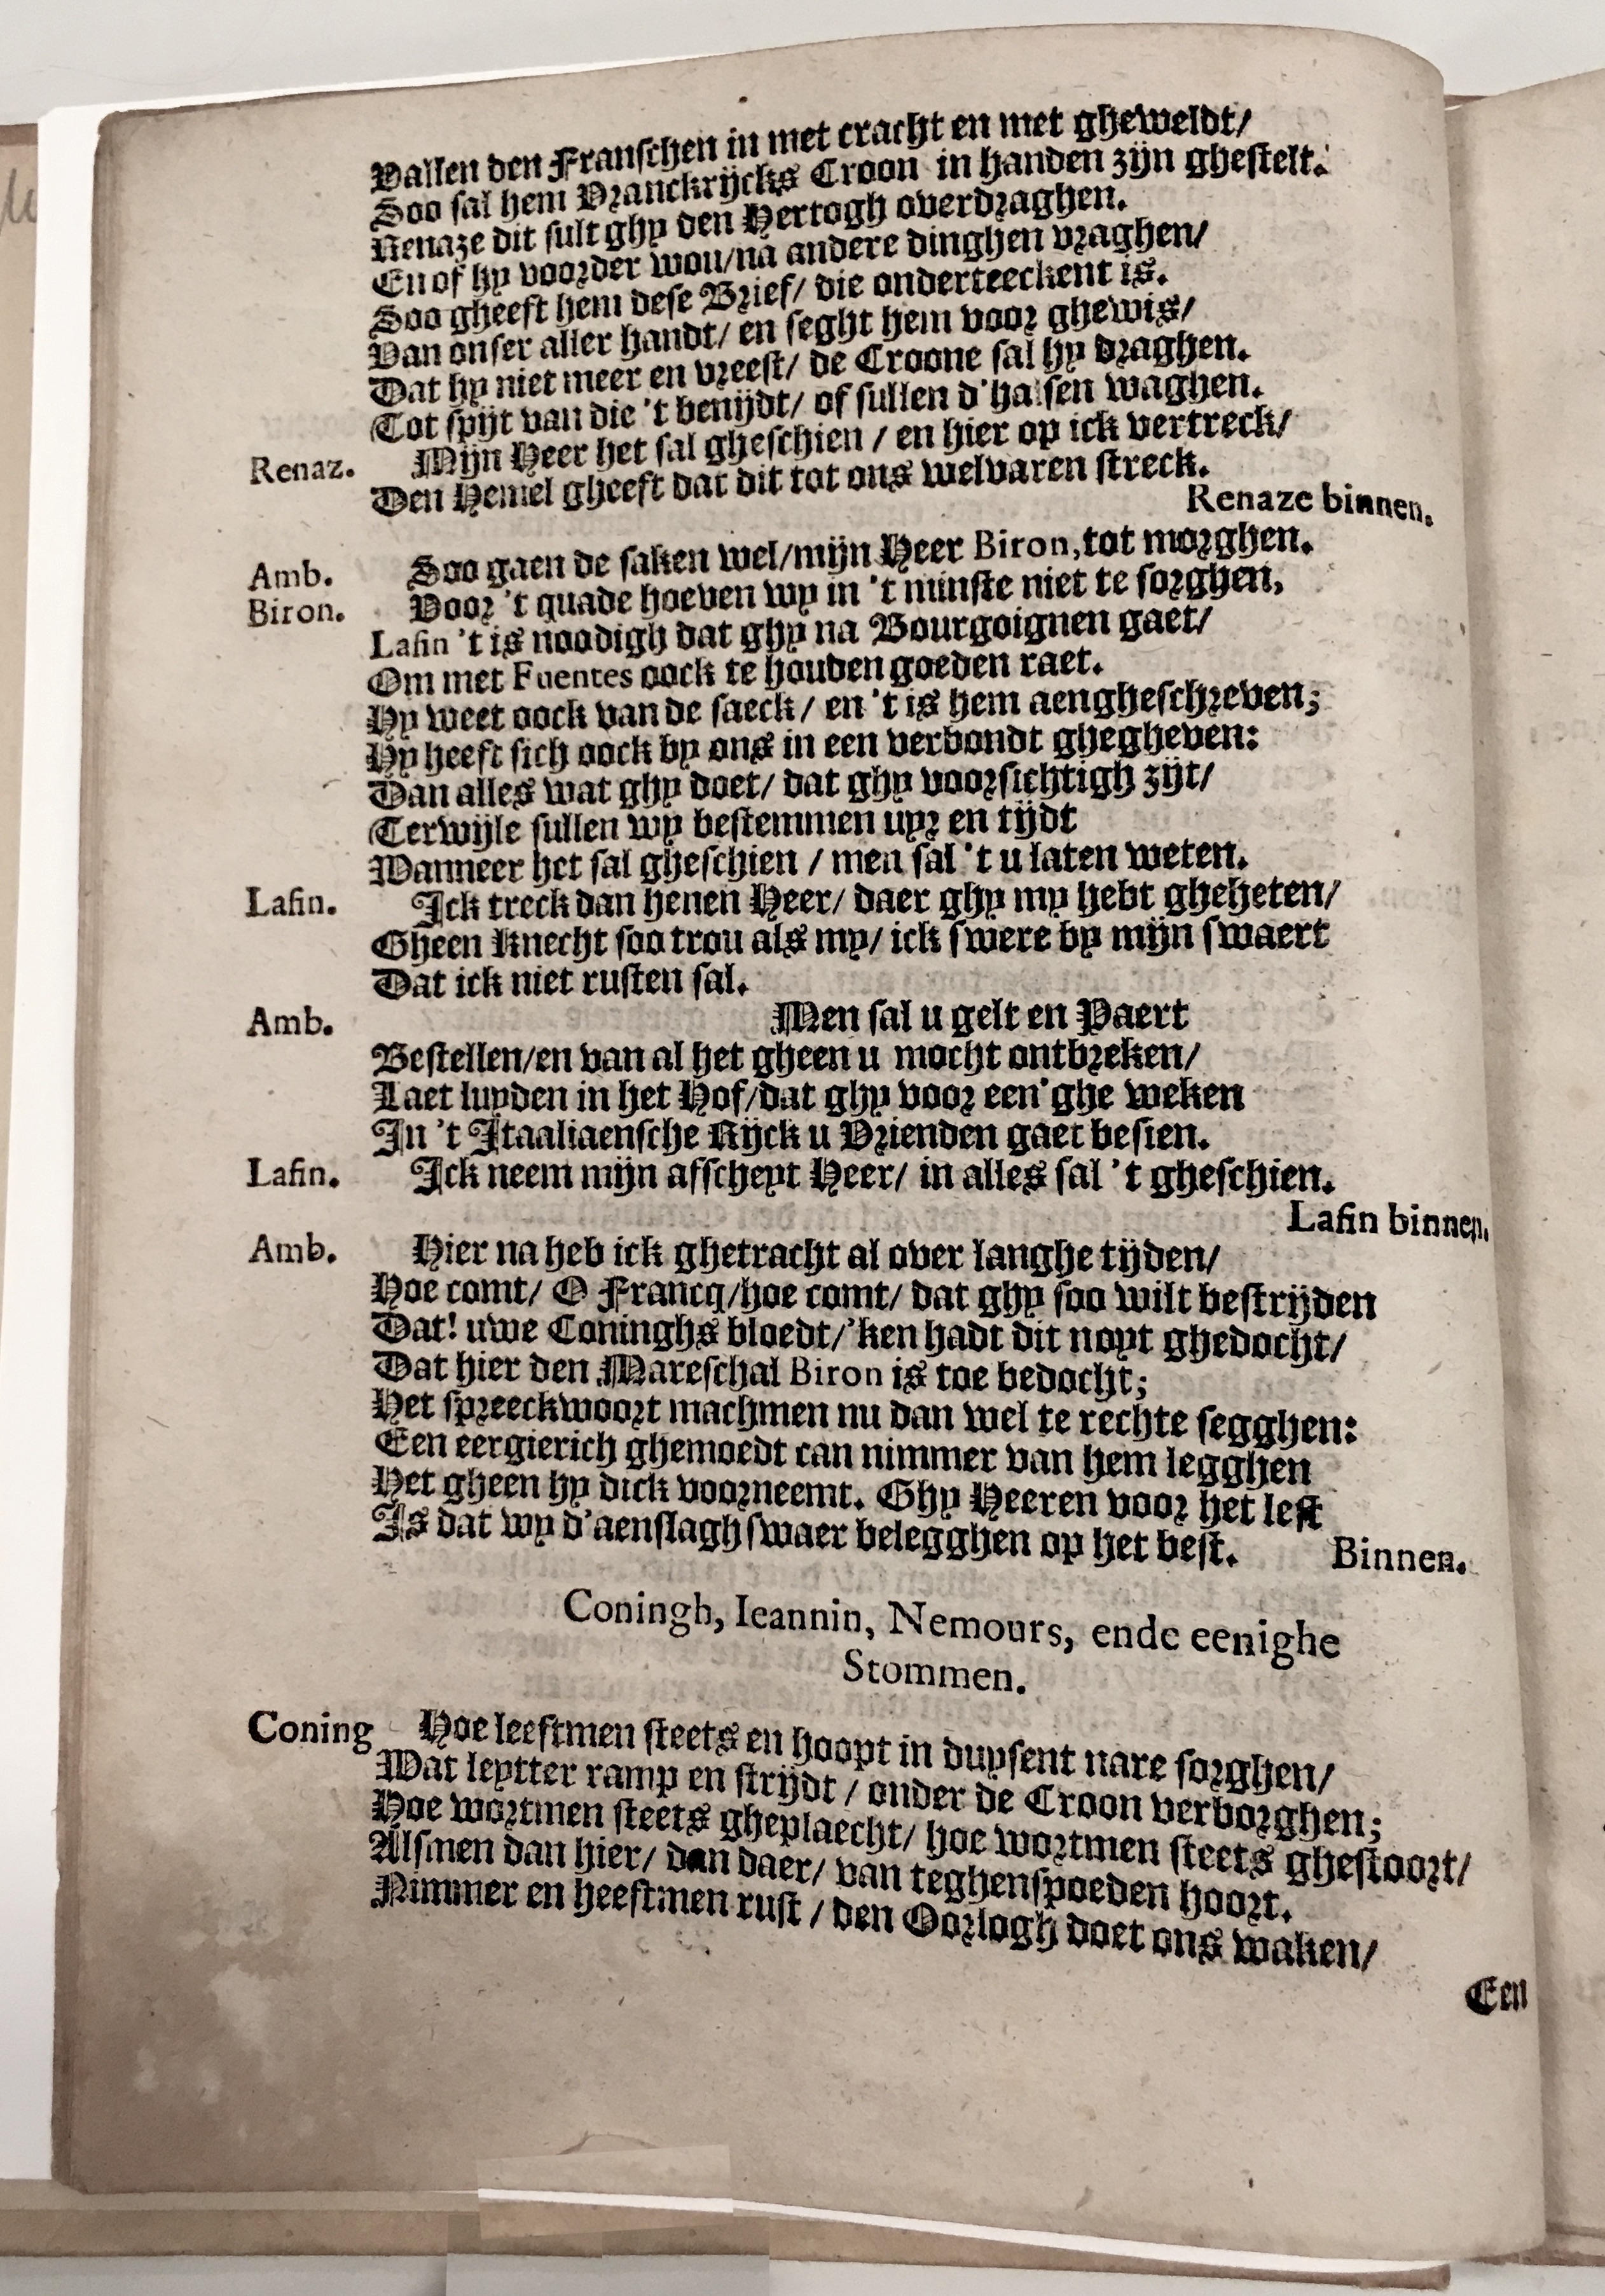 Vallen den Franschen in met cracht en met gheweldt/
Soo sal hem Vranckrijcks Croon in handen zijn ghestelt.
Renaze dit sult ghy den Hertogh overdraghen.
En of hy voorder wou/na andere dinghen vraghen/
Soo gheeft hem dese Brief/ die onderteeckent is.
Van onser aller handt/ en seght hem voor ghewis/
Dat hy niet meer en vreest/ de Croone sal hy draghen.
Tot spijt van die 't benijdt/ of sullen d'halsen waghen.
Renaz. Mijn Heer het sal gheschien / en hier op ick vertreck/
Den Hemel gheeft dat dit tot ons welvaren streck.
Renaze binnen.
Amb. Soo gaen de saken wel/mijn Heer Biron,tot morghen.
Biron. Voor 't quade hoeven wy in 't minste niet te sorghen,
Lafin 't is noodigh dat ghy na Bourgoignen gaet/
Om met Fuentes oock te houden goeden raet.
Hy weet oock van de saeck/ en 't is hem aengheschreven;
Hy heeft sich oock by ons in een verbondt ghegheven:
Dan alles wat ghy doet/ dat ghy voorsichtigh zijt/
Terwijle sullen wy bestemmen uyr en tijdt
Wanneer het sal gheschien / men sal 't u laten weten.
Lafin. Ick treck dan henen Heer/ daer ghy my hebt gheheten/
Gheen Knecht soo trou als my/ ick swere by mijn swaert
Dat ick niet rusten sal.
Amb. Men sal u gelt en Paert
Bestellen/en van al het gheen u mocht ontbreken/
Laet luyden in het Hof/dat ghy voor een'ghe weken
In 't Itaaliaensche Rijck u Vrienden gaet besien.
Lafin. Ick neem mijn afscheyt Heer/ in alles sal 't gheschien.
Lafin binnen.
Amb. Hier na heb ick ghetracht al over langhe tijden/
Hoe comt/ O Francq/hoe comt/ dat ghy soo wilt bestrijden
Dat! uwe Coninghs bloedt/'ken hadt dit noyt ghedocht/
Dat hier den Mareschal Biron is toe bedocht;
Het spreeckwoort machmen nu dan wel te rechte segghen:
Een eergierich ghemoedt can nimmer van hem legghen
Het gheen hy dick voorneemt. Ghy Heeren voor het lest
Is dat wy d'aenslagh swaer belegghen op het best. Binnen.
Coningh, Ieannin, Nemours, ende eenighe
Stommen.
Coning Hoe leeftmen steets en hoopt in duysent nare sorghen/
Wat leytter ramp en strijdt / onder de Croon verborghen;
Hoe wortmen steets gheplaecht/ hoe wortmen steets ghestoort/
Alsmen dan hier/ dan daer/ van teghenspoeden hoort.
Nimmer en heeftmen rust / den Oorlogh doet ons waken/
Een